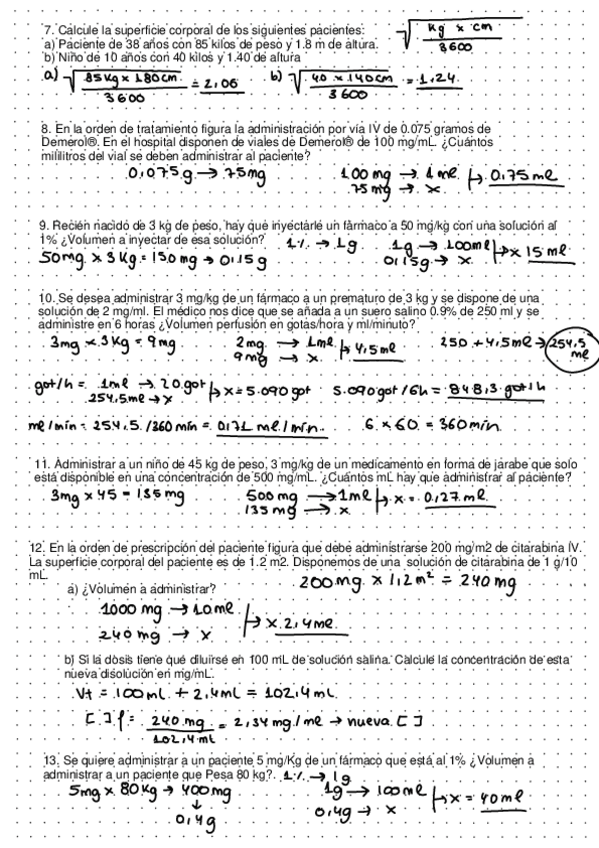 7. Calcule la superficie corporal de los siguientes pacientes:
√ kg x cm / 3600
a) Paciente de 38 años con 85 kilos de peso y 1.8 m de altura.
b) Niño de 10 años con 40 kilos y 1.40 de altura
a) √ 85Kg x 180cm / 3600 = 2,06 b) √ 40 x 140cm / 3600 = 1,24
8. En la orden de tratamiento figura la administración por vía IV de 0.075 gramos de
Demerol®. En el hospital disponen de viales de Demerol® de 100 mg/mL. ¿Cuántos
mililitros del vial se deben administrar al paciente?
0,075g → 75mg 100 mg → 1 ml 0,75 ml
75 mg → x
9. Recién nacido de 3 kg de peso, hay que inyectarle un fármaco a 50 mg/kg con una solución al
1% ¿Volumen a inyectar de esa solución? 1% → 1g 1g → 100ml x 15 ml
50mg x 3Kg = 150mg → 0,15g 0,15g → x
10. Se desea administrar 3 mg/kg de un fármaco a un prematuro de 3 kg y se dispone de una
solución de 2 mg/ml. El médico nos dice que se añada a un suero salino 0.9% de 250 ml y se
administre en 6 horas ¿Volumen perfusión en gotas/hora y ml/minuto?
3mg x 3Kg = 9mg 2mg → 1ml 4,5ml 250 + 4,5ml → 254,5 ml
9mg → x
got/h = 1ml → 20 got x = 5.090 got 5.090 got / 6h = 848,3 got/h
254,5ml → x
ml/min = 254,5 / 360 min = 0,71 ml/min 6 x 60 = 360 min
11. Administrar a un niño de 45 kg de peso, 3 mg/kg de un medicamento en forma de jarabe que solo
está disponible en una concentración de 500 mg/mL. ¿Cuántos mL hay que administrar al paciente?
3mg x 45 = 135 mg 500 mg → 1ml x = 0,27 ml
135 mg → x
12. En la orden de prescripción del paciente figura que debe administrarse 200 mg/m2 de citarabina IV.
La superficie corporal del paciente es de 1.2 m2. Disponemos de una solución de citarabina de 1 g/10
mL. 200 mg x 1,2m² = 240 mg
a) ¿Volumen a administrar?
1000 mg → 10ml x 2,4ml
240 mg → x
b) Si la dosis tiene que diluirse en 100 mL de solución salina. Calcule la concentración de esta
nueva disolución en mg/mL.
Vt = 100mL + 2,4mL = 102,4mL
[ ] f = 240 mg / 102,4 mL = 2,34 mg/ml → nueva [ ]
13. Se quiere administrar a un paciente 5 mg/Kg de un fármaco que está al 1% ¿Volumen a
administrar a un paciente que Pesa 80 kg?. 1% → 1g
5mg x 80Kg → 400mg 1g → 100ml x = 40ml
↓ 0,4g → x
0,4g